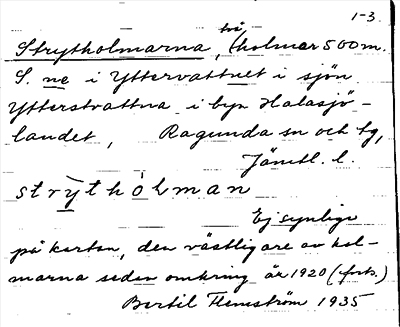 1-3.
två
Strytholmarna, (holmar 500m.
S. ne i Yttervattnet i sjön
Ytterstvattna i byn Halasjö-
landet, Ragunda sn och tg,
Jämtl. l.
strythólman
Ej synliga
på kartan, den västligare av hol-
marna sedan omkring år 1920 (forts.)
Bertil Flemström 1935